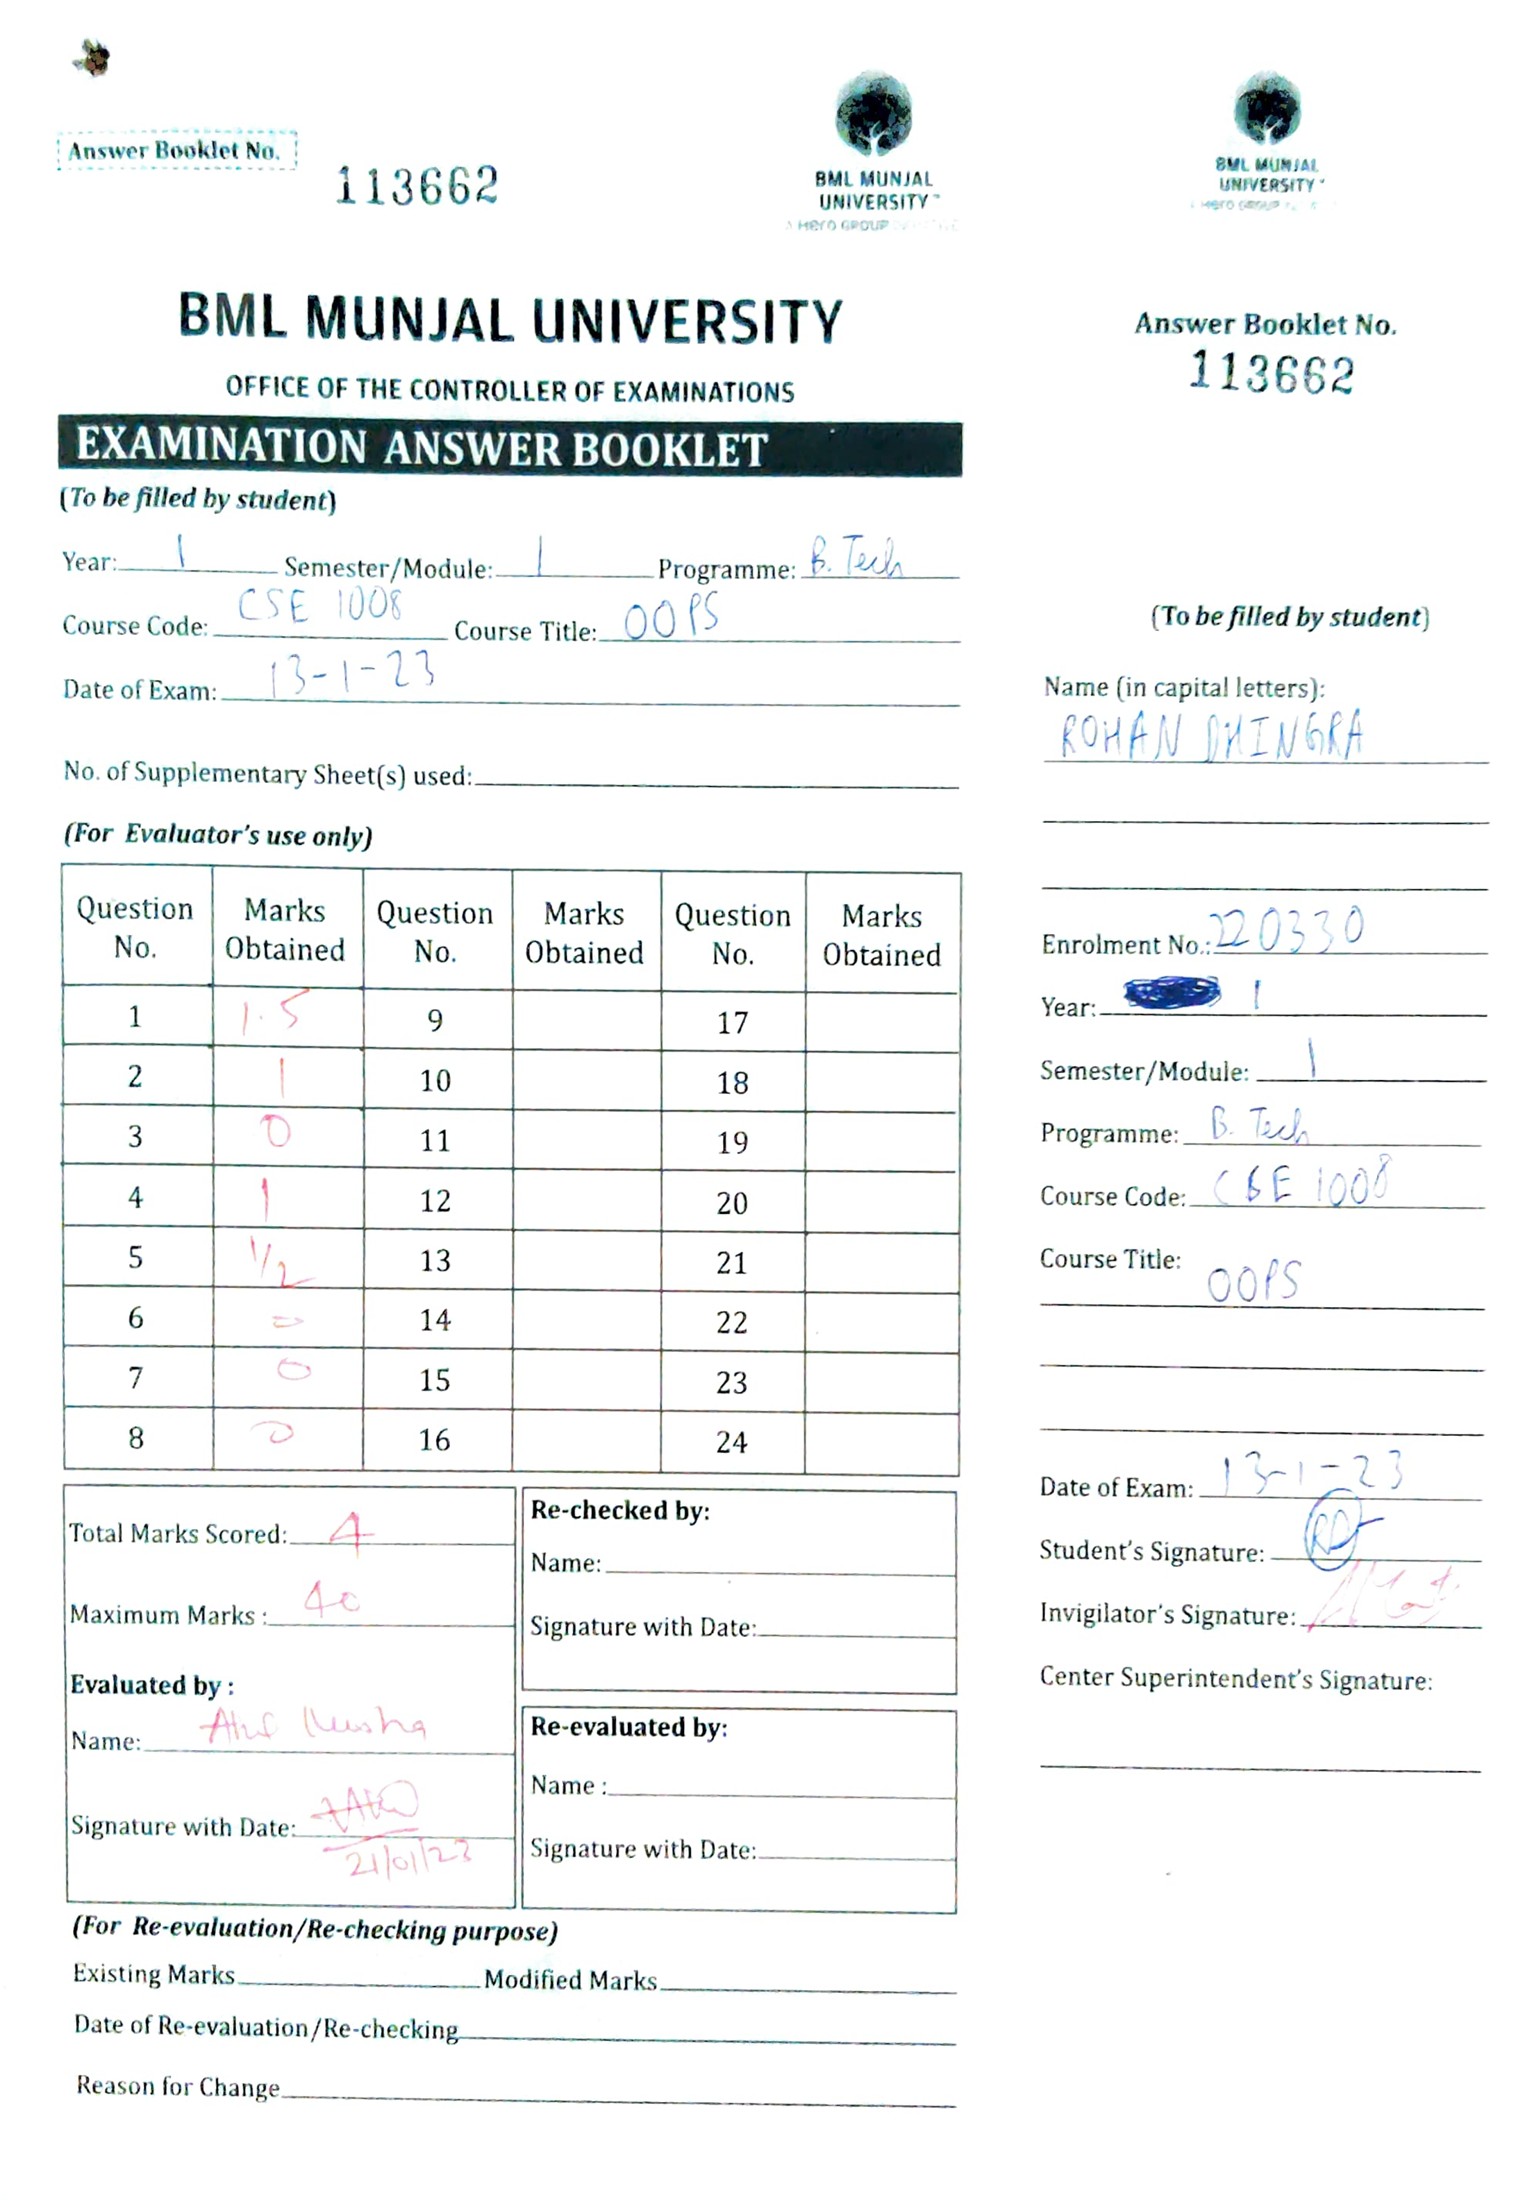 Answer Booklet No.
113662
BML MUNJAL
UNIVERSITY
A Hero GROUP
BML MUNJAL
UNIVERSITY
Hero GROUP
BML MUNJAL UNIVERSITY
OFFICE OF THE CONTROLLER OF EXAMINATIONS
EXAMINATION ANSWER BOOKLET
(To be filled by student)
Year: 1 Semester/Module: 1 Programme: B. Tech
Course Code: CSE 1008 Course Title: OOPS
Date of Exam: 13-1-23
No. of Supplementary Sheet(s) used:
(For Evaluator's use only)
Question No. Marks Obtained Question No. Marks Obtained Question No. Marks Obtained
1 1.5 9 17
2 1 10 18
3 0 11 19
4 1 12 20
5 1/2 13 21
6 0 14 22
7 0 15 23
8 0 16 24
Total Marks Scored: 4
Maximum Marks : 40
Evaluated by :
Name:
Signature with Date: 21/01/23
Re-checked by:
Name:
Signature with Date:
Re-evaluated by:
Name :
Signature with Date:
(For Re-evaluation/Re-checking purpose)
Existing Marks Modified Marks
Date of Re-evaluation/Re-checking
Reason for Change
Answer Booklet No.
113662
(To be filled by student)
Name (in capital letters):
ROHAN DHINGRA
Enrolment No.: 220330
Year: 1
Semester/Module: 1
Programme: B. Tech
Course Code: CSE 1008
Course Title: OOPS
Date of Exam: 13-1-23
Student's Signature: RD
Invigilator's Signature:
Center Superintendent's Signature: